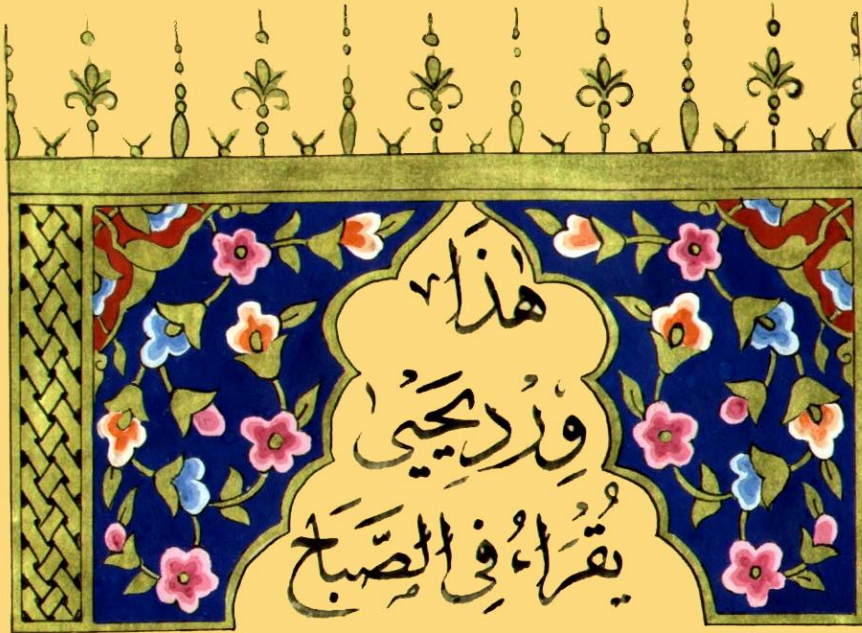 هٰذَا
وِرْدِ يَحْيٰى
يُقْرَاءُ فِى الصَّبَاحِ